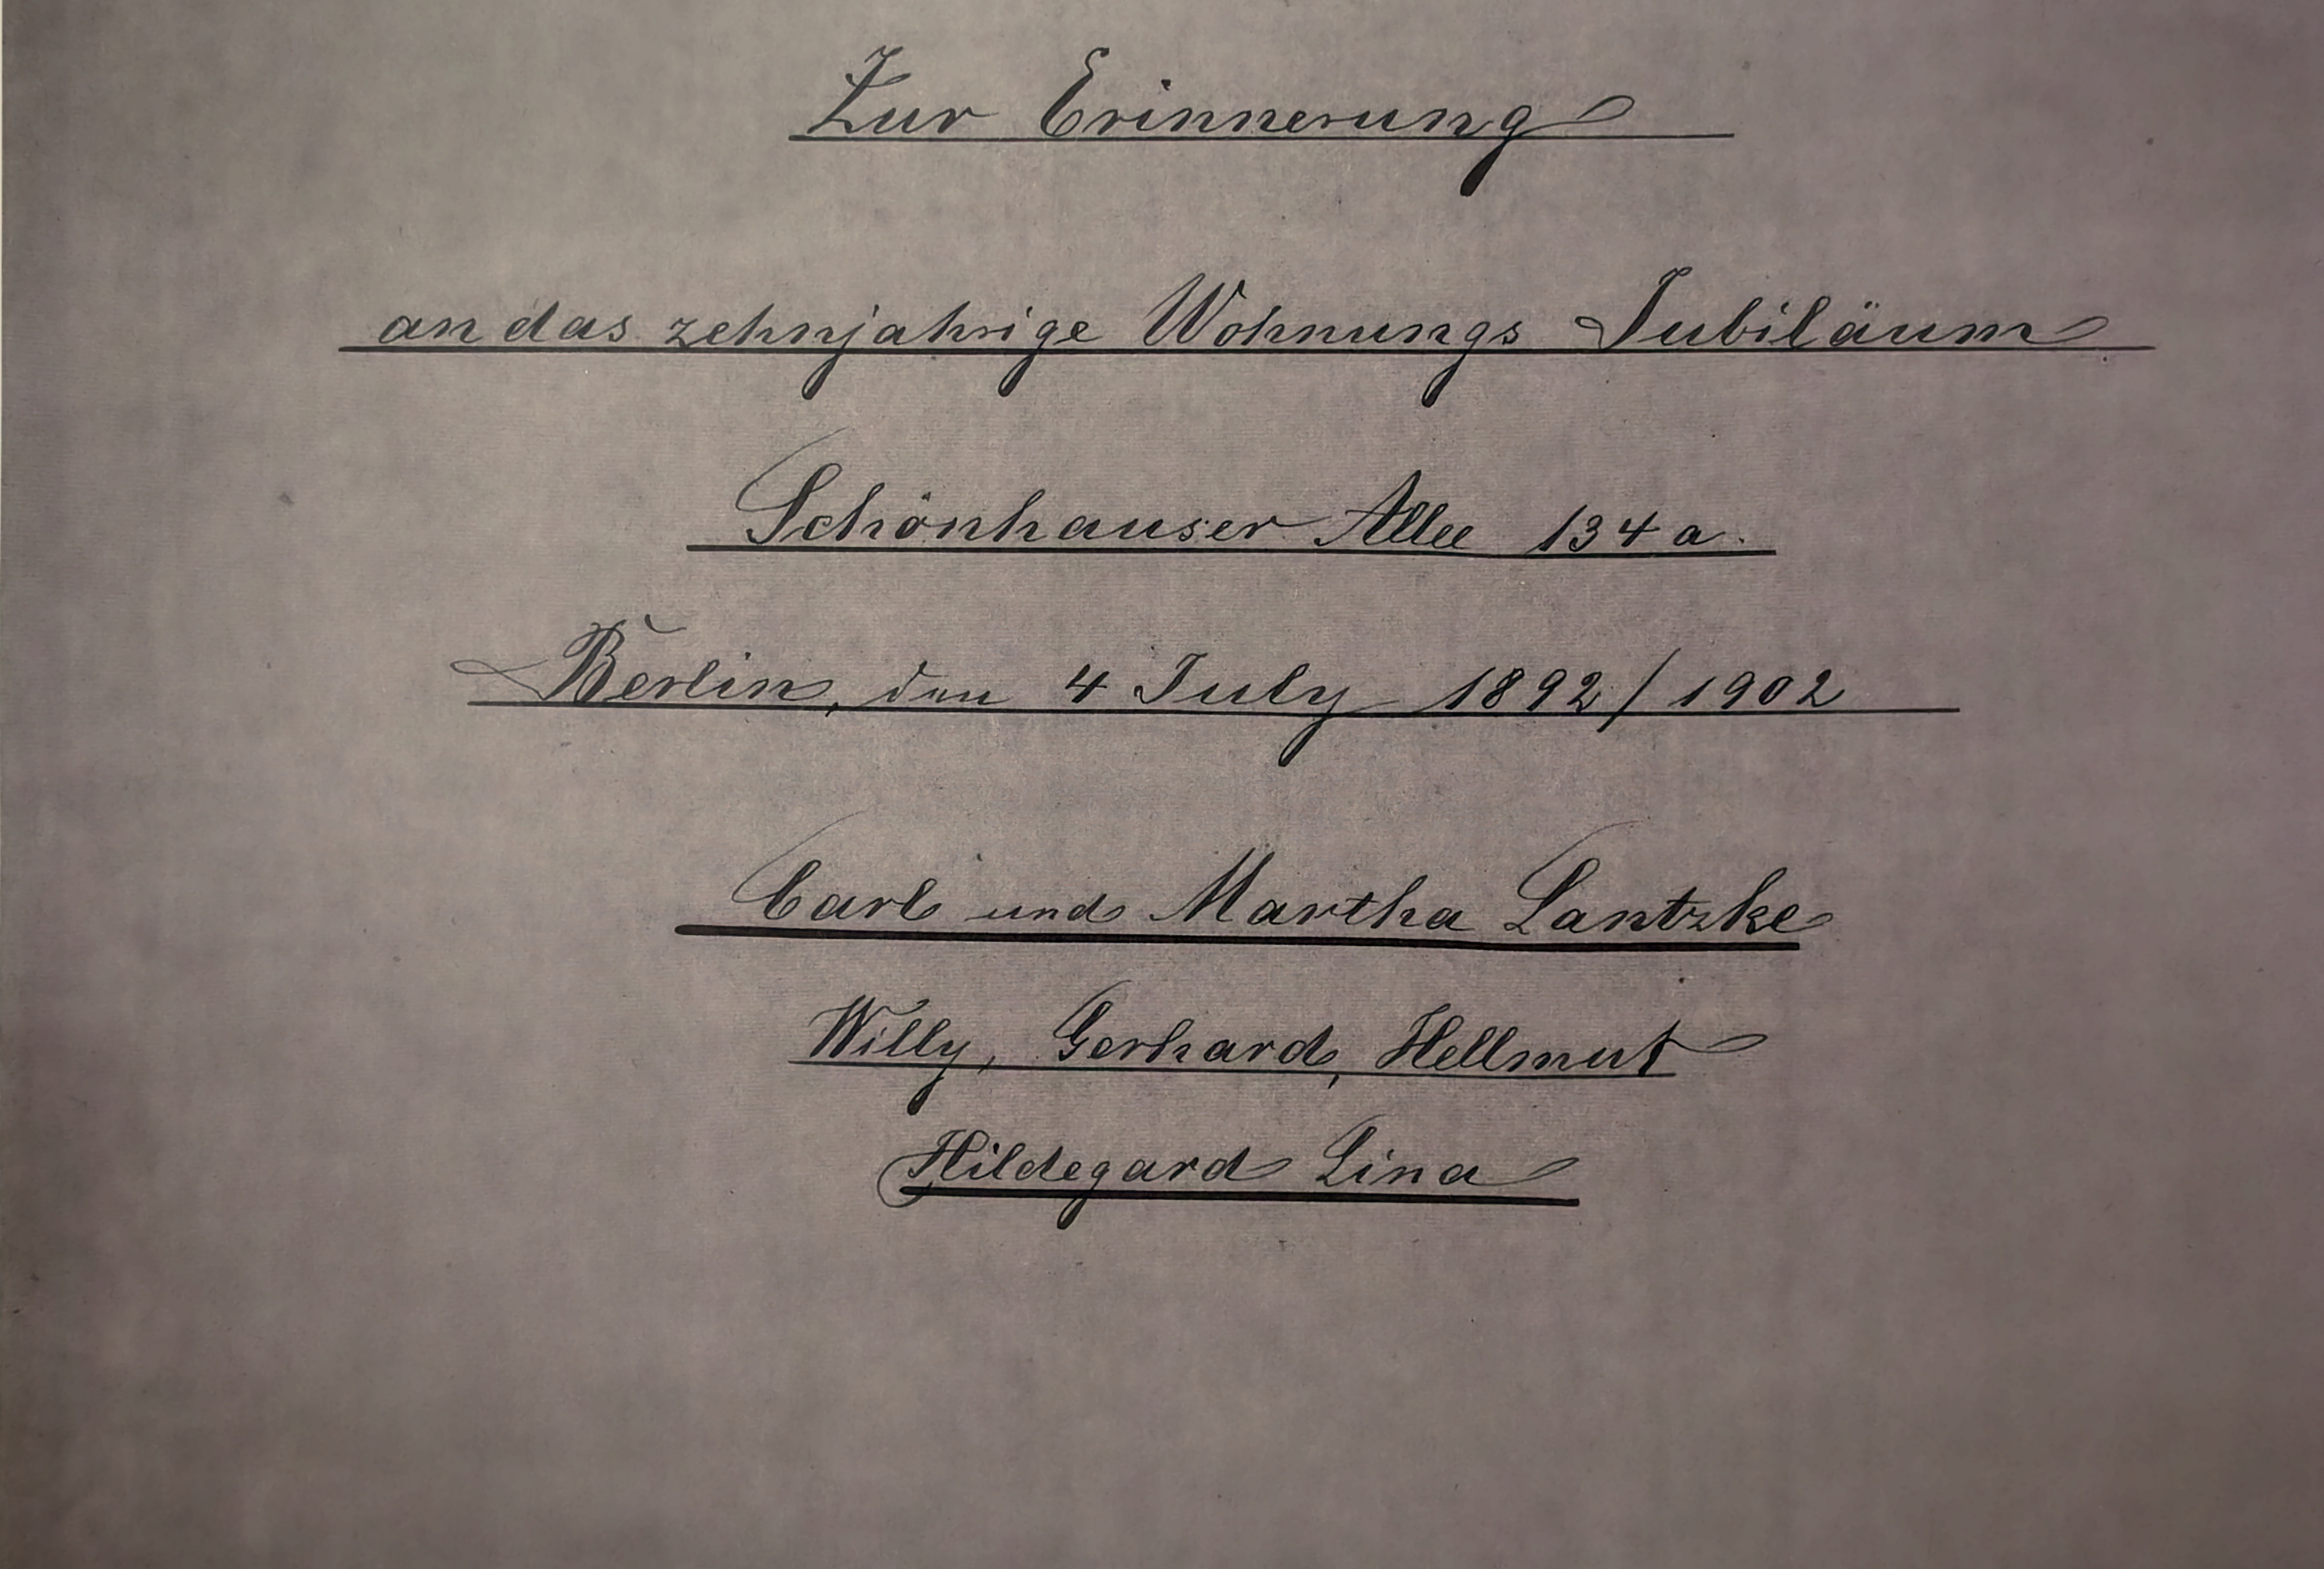 Zur Erinnerung
an das zehnjahrige Wohnungs Jubiläum
Schönhauser Allee 134 a.
Berlin, den 4 July 1892/1902
Carl und Martha Lantzke
Willy, Gerhard, Hellmut
Hildegard Lina